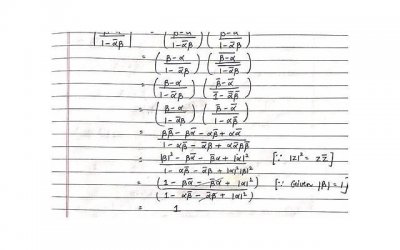 |β-α / 1-ᾱβ|² = (β-α / 1-ᾱβ) (β-α / 1-ᾱβ)
= (β-α / 1-ᾱβ) (β̄-ᾱ / 1-ᾱβ)
= (β-α / 1-ᾱβ) (β̄-ᾱ / 1̄-ᾱβ)
= (β-α / 1-ᾱβ) (β̄-ᾱ / 1-αβ̄)
= ββ̄ - βᾱ - αβ̄ + αᾱ / 1-αβ̄ - ᾱβ + αᾱββ̄
= |β|² - βᾱ - β̄α + |α|² / 1-αβ̄ - ᾱβ + |α|²|β|² [∵ |z|² = zz̄]
= (1 - βᾱ - β̄α + |α|²) / (1 - αβ̄ - ᾱβ + |α|²) [∵ Given |β| = 1]
= 1